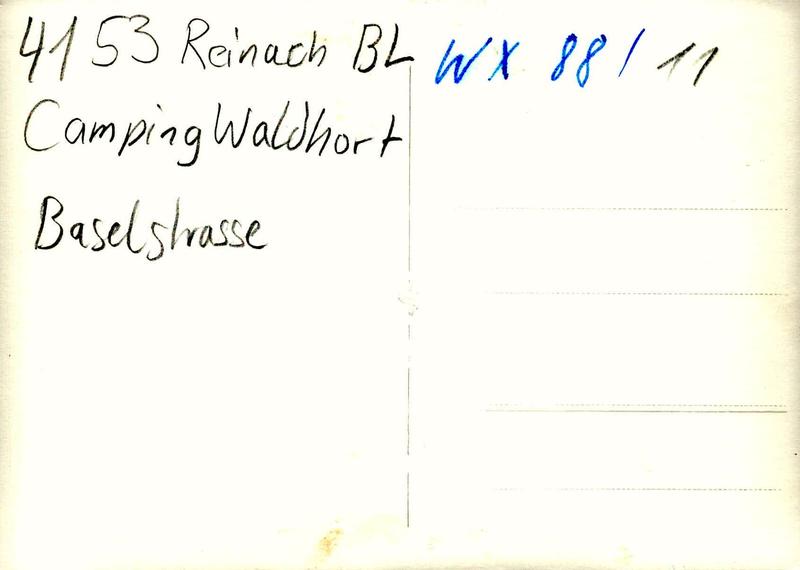 4153 Reinach BL
Camping Waldhort
Baselstrasse
WX 88/11